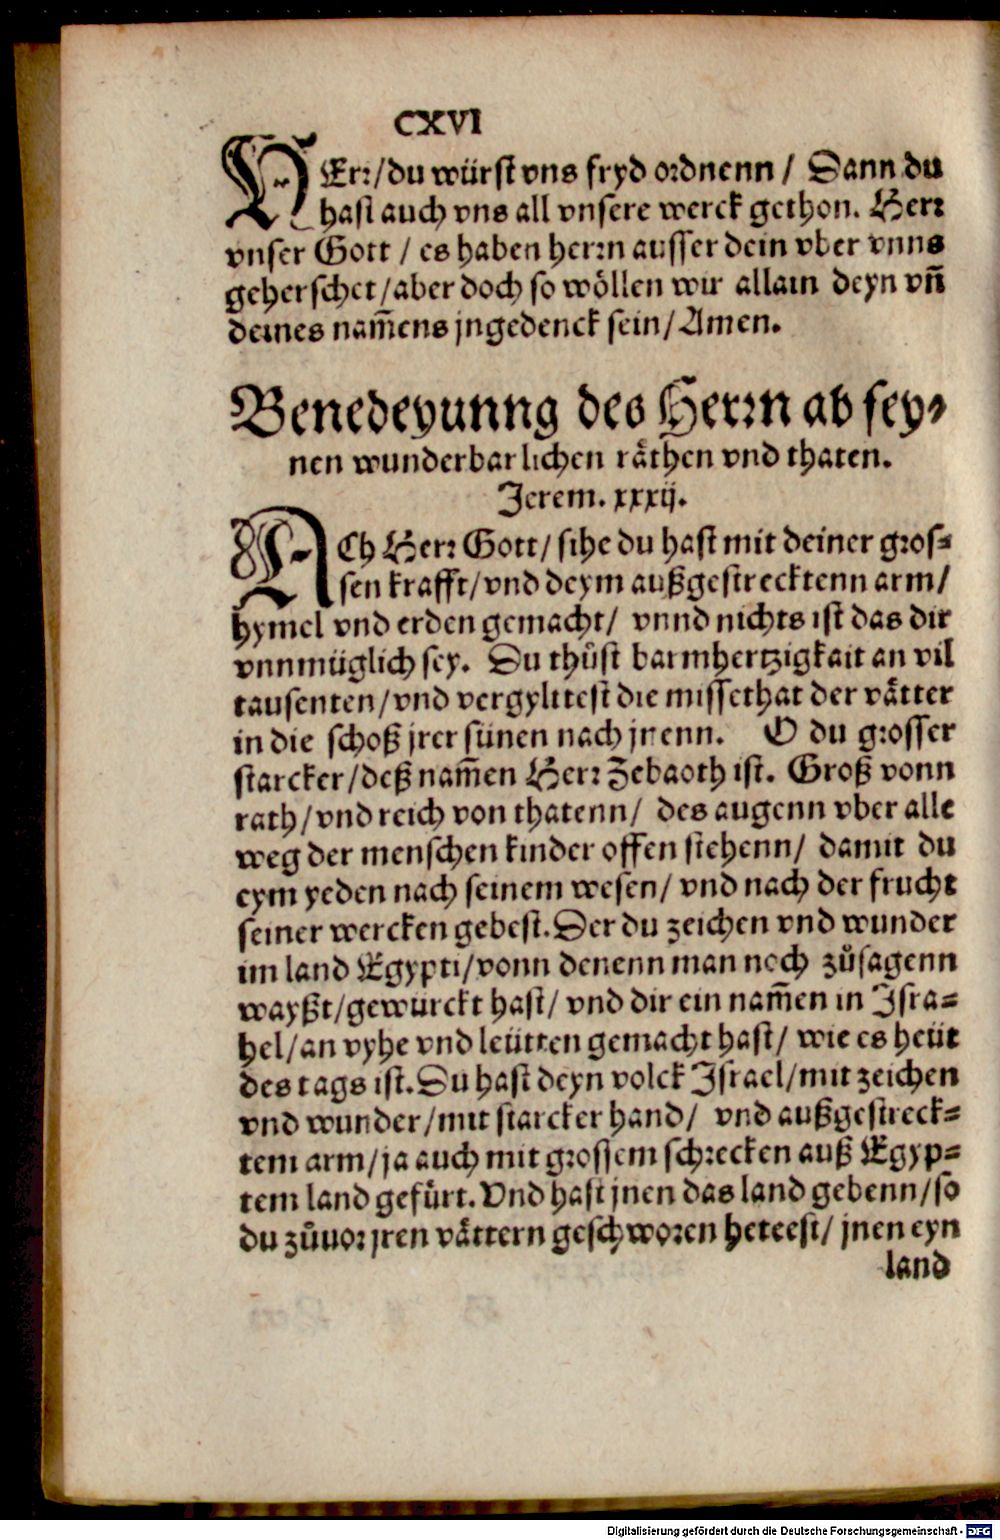 CXVI
HErr/du würst vns fryd ordnenn / Dann du
hast auch vns all vnsere werck gethon. Herr
vnser Gott / es haben herrn ausser dein vber vnns
geherschet/aber doch so wöllen wir allain deyn vñ
deines nam̃ens jngedenck sein/Amen.
Benedeyunng des Herrn ab sey⸗
nen wunderbarlichen räthen vnd thaten.
Jerem. xxxij.
ACh Herr Gott/sihe du hast mit deiner gros⸗
sen krafft/vnd deym außgestrecktenn arm/
hymel vnd erden gemacht/ vnnd nichts ist das dir
vnnmüglich sey. Du thůst barmhertzigkait an vil
tausenten/vnd vergylttest die missethat der vätter
in die schoß jrer sünen nach jnenn. O du grosser
starcker/deß nam̃en Herr Zebaoth ist. Groß vonn
rath/vnd reich von thatenn/ des augenn vber alle
weg der menschen kinder offen stehenn/ damit du
eym yeden nach seinem wesen/ vnd nach der frucht
seiner wercken gebest. Der du zeichen vnd wunder
im land Egypti/vonn denenn man noch zůsagenn
wayßt/gewürckt hast/ vnd dir ein nam̃en in Isra⸗
hel/an vyhe vnd leütten gemacht hast/ wie es heüt
des tags ist. Du hast deyn volck Israel/mit zeichen
vnd wunder/mit starcker hand/ vnd außgestreck⸗
tem arm/ja auch mit grossem schrecken auß Egyp⸗
tem land gefürt. Vnd hast jnen das land gebenn/so
du zůuor jren vättern geschworen heteest/ jnen eyn
land
Digitalisierung gefördert durch die Deutsche Forschungsgemeinschaft - DFG